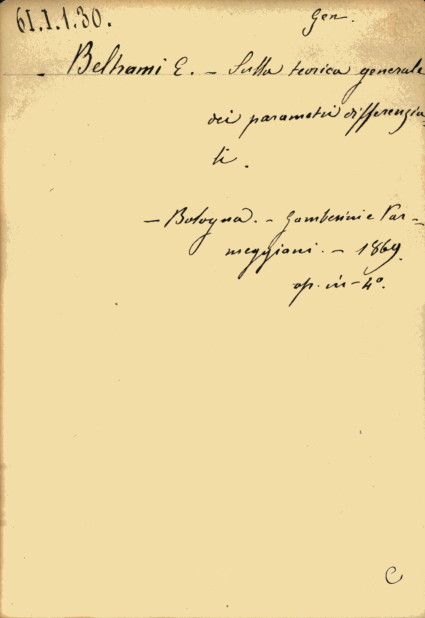 61.I.1.30. Gen.
Beltrami E. – Sulla teorica generale
dei parametri differenzia
li.
– Bologna. – Gamberini e Par–
meggiani. – 1869.
op. in–4°.
C